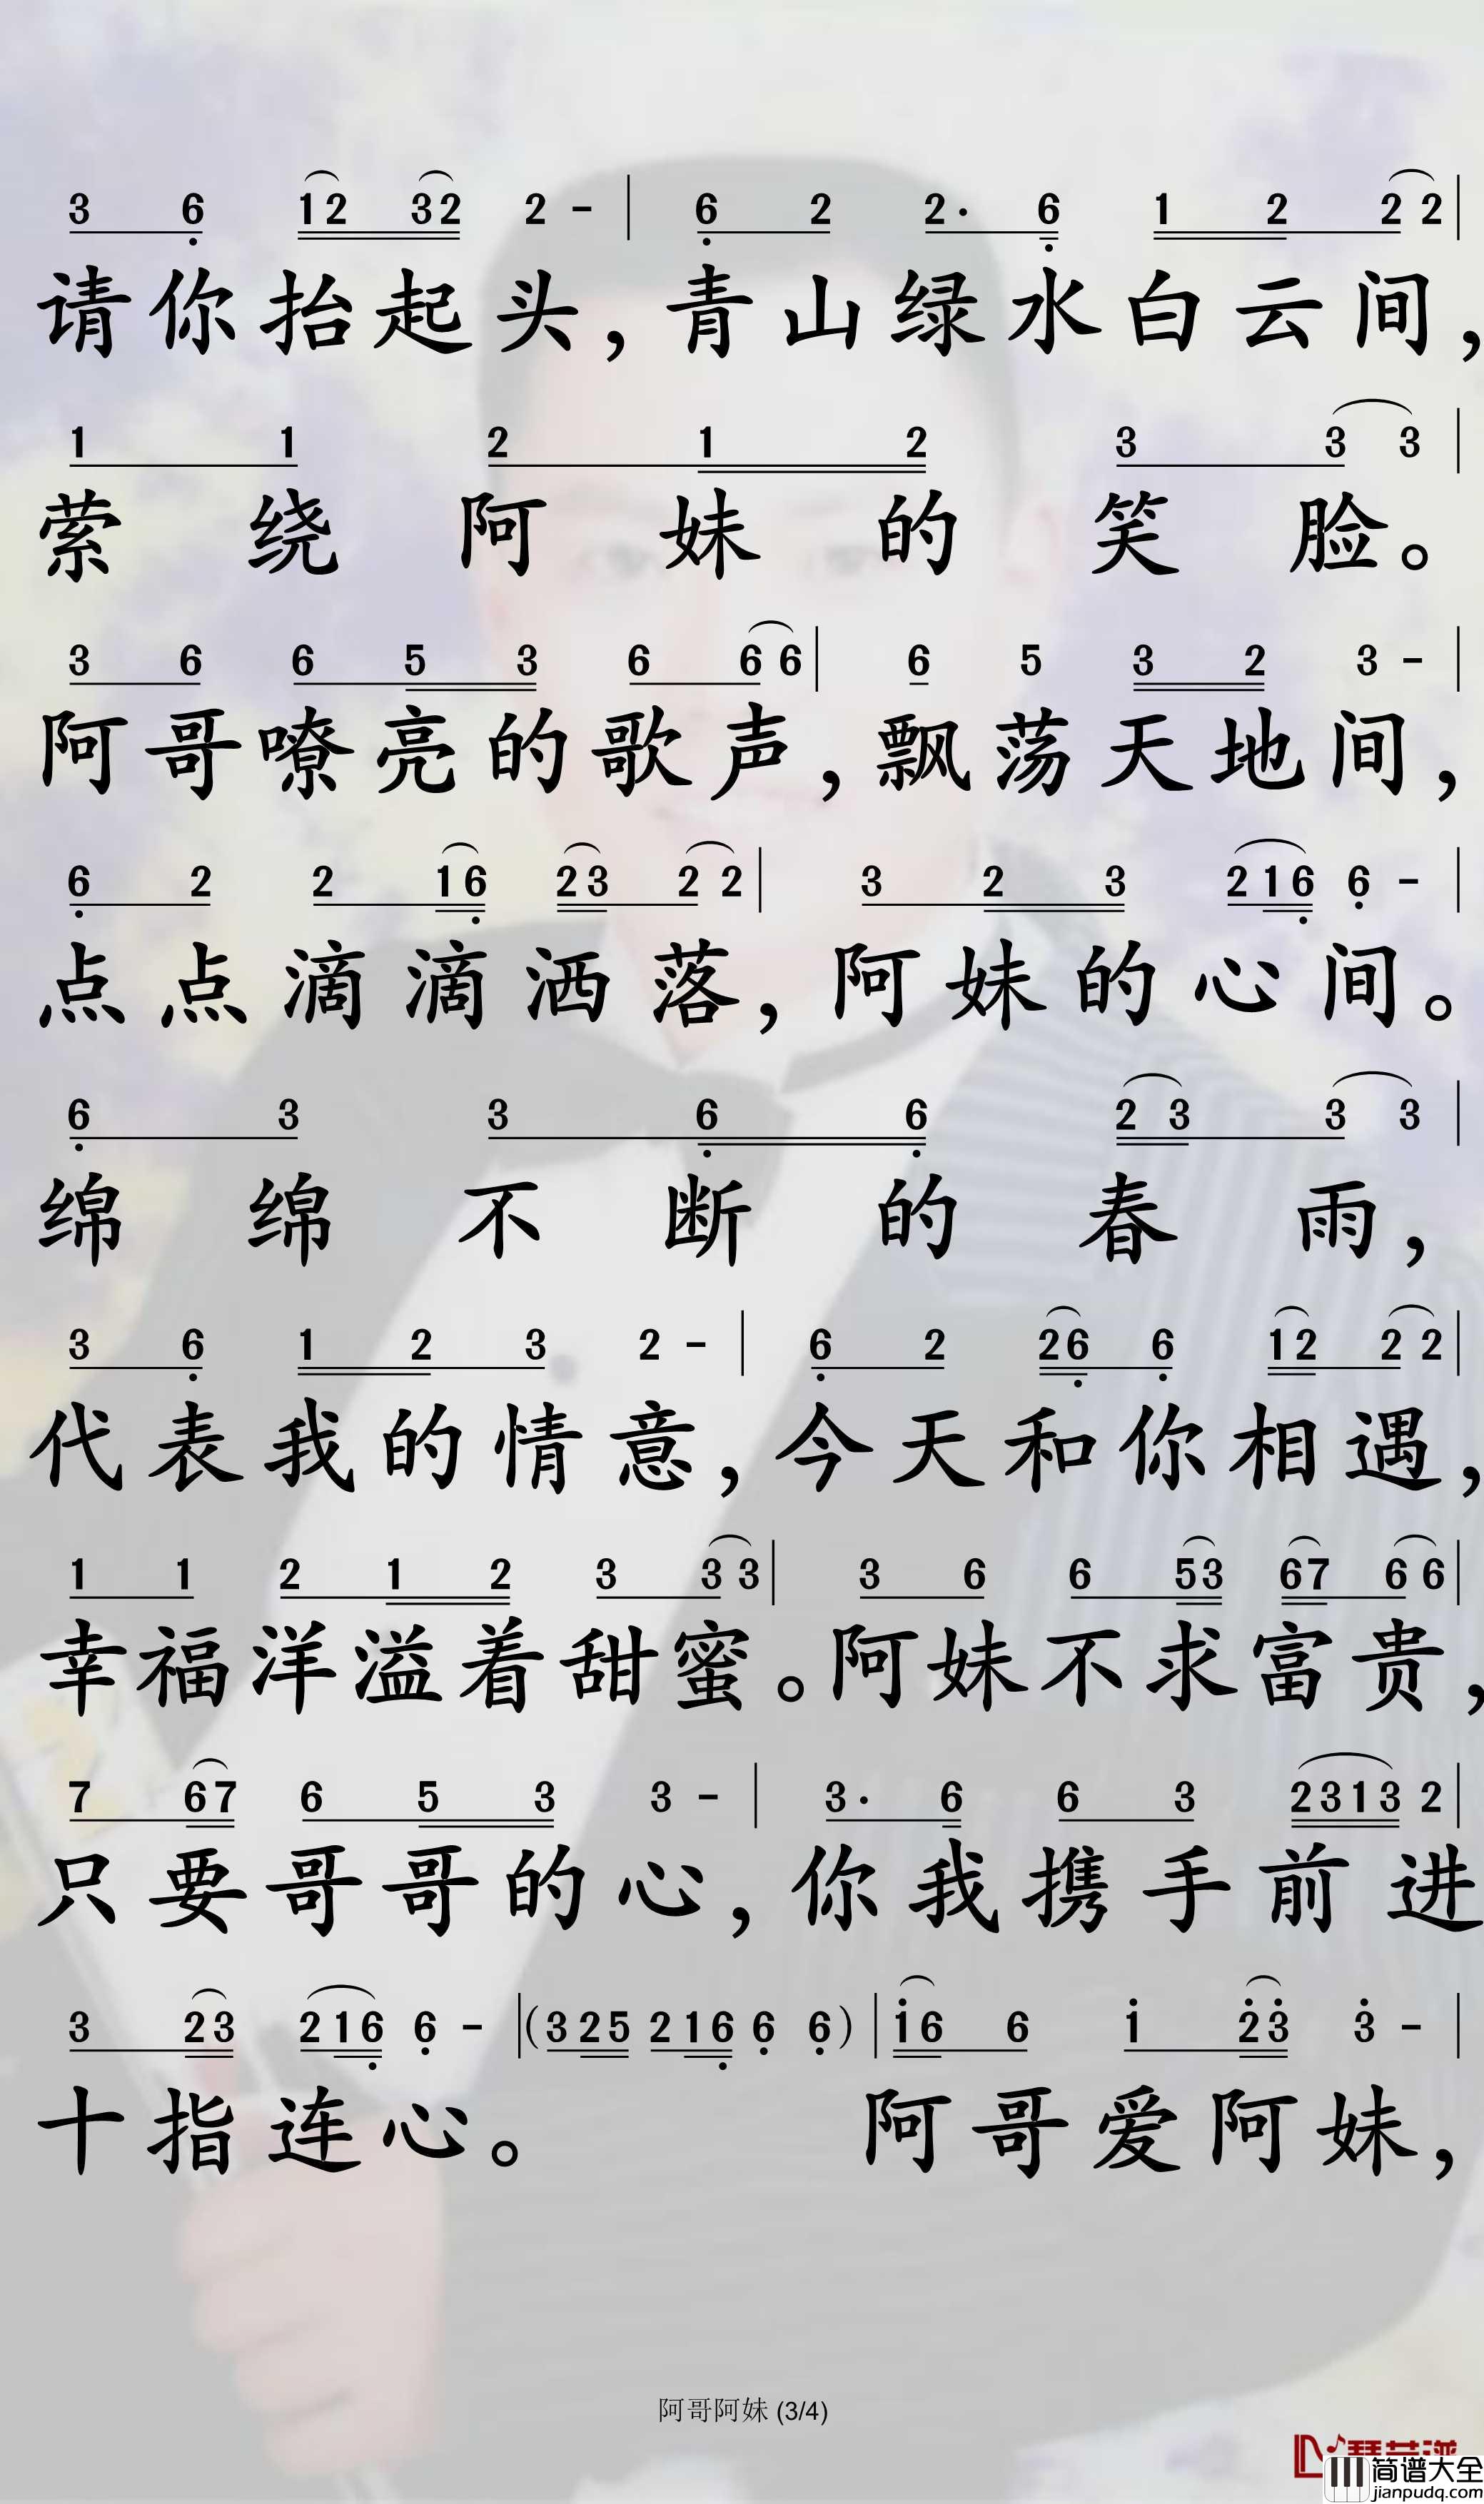 3 6 12 32 2 - | 6 2 2· 6 1 2 2 2 |
请你抬起头，青山绿水白云间，
1 1 2 1 2 3 3 3 |
萦绕阿妹的笑脸。
3 6 6 5 3 6 6 6 | 6 5 3 2 3 - |
阿哥嘹亮的歌声，飘荡天地间，
6 2 2 16 23 2 2 | 3 2 3 216 6 - |
点点滴滴洒落，阿妹的心间。
6 3 3 6 6 2 3 3 3 |
绵绵不断的春雨，
3 6 1 2 3 2 - | 6 2 26 6 12 2 2 |
代表我的情意，今天和你相遇，
1 1 2 1 2 3 3 3 | 3 6 6 53 67 6 6 |
幸福洋溢着甜蜜。阿妹不求富贵，
7 67 6 5 3 3 - | 3· 6 6 3 2313 2 |
只要哥哥的心，你我携手前进
3 23 216 6 - | (325 216 6 6) | 16 6 1 23 3 - |
十指连心。 阿哥爱阿妹，
阿哥阿妹 (3/4)
简谱大全
jianpudq.com